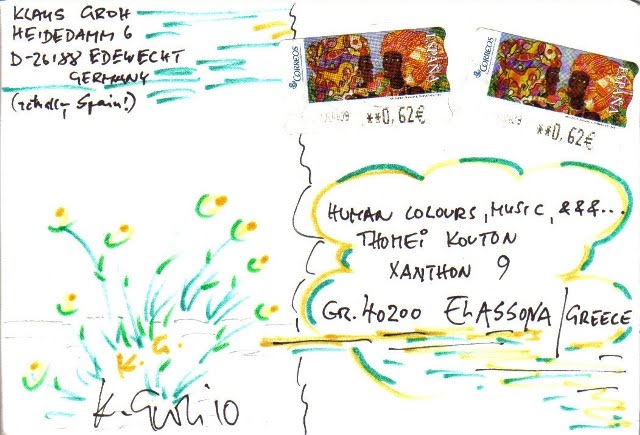 KLAUS GROH
HEIDEDAMM 6
D-26188 EDEWECHT
GERMANY
Spain!)
CORREOS
ESPAÑA
**0,62€
CORREOS
ESPAÑA
**0,62€
HUMAN COLOURS, MUSIC, &&&...
THOMEI KOUTON
XANTHON 9
GR. 40200 ELASSONA / GREECE
K. G.
K. Groh 10